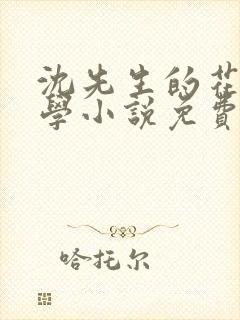 沈先生的花
學小說免費
哈托尔